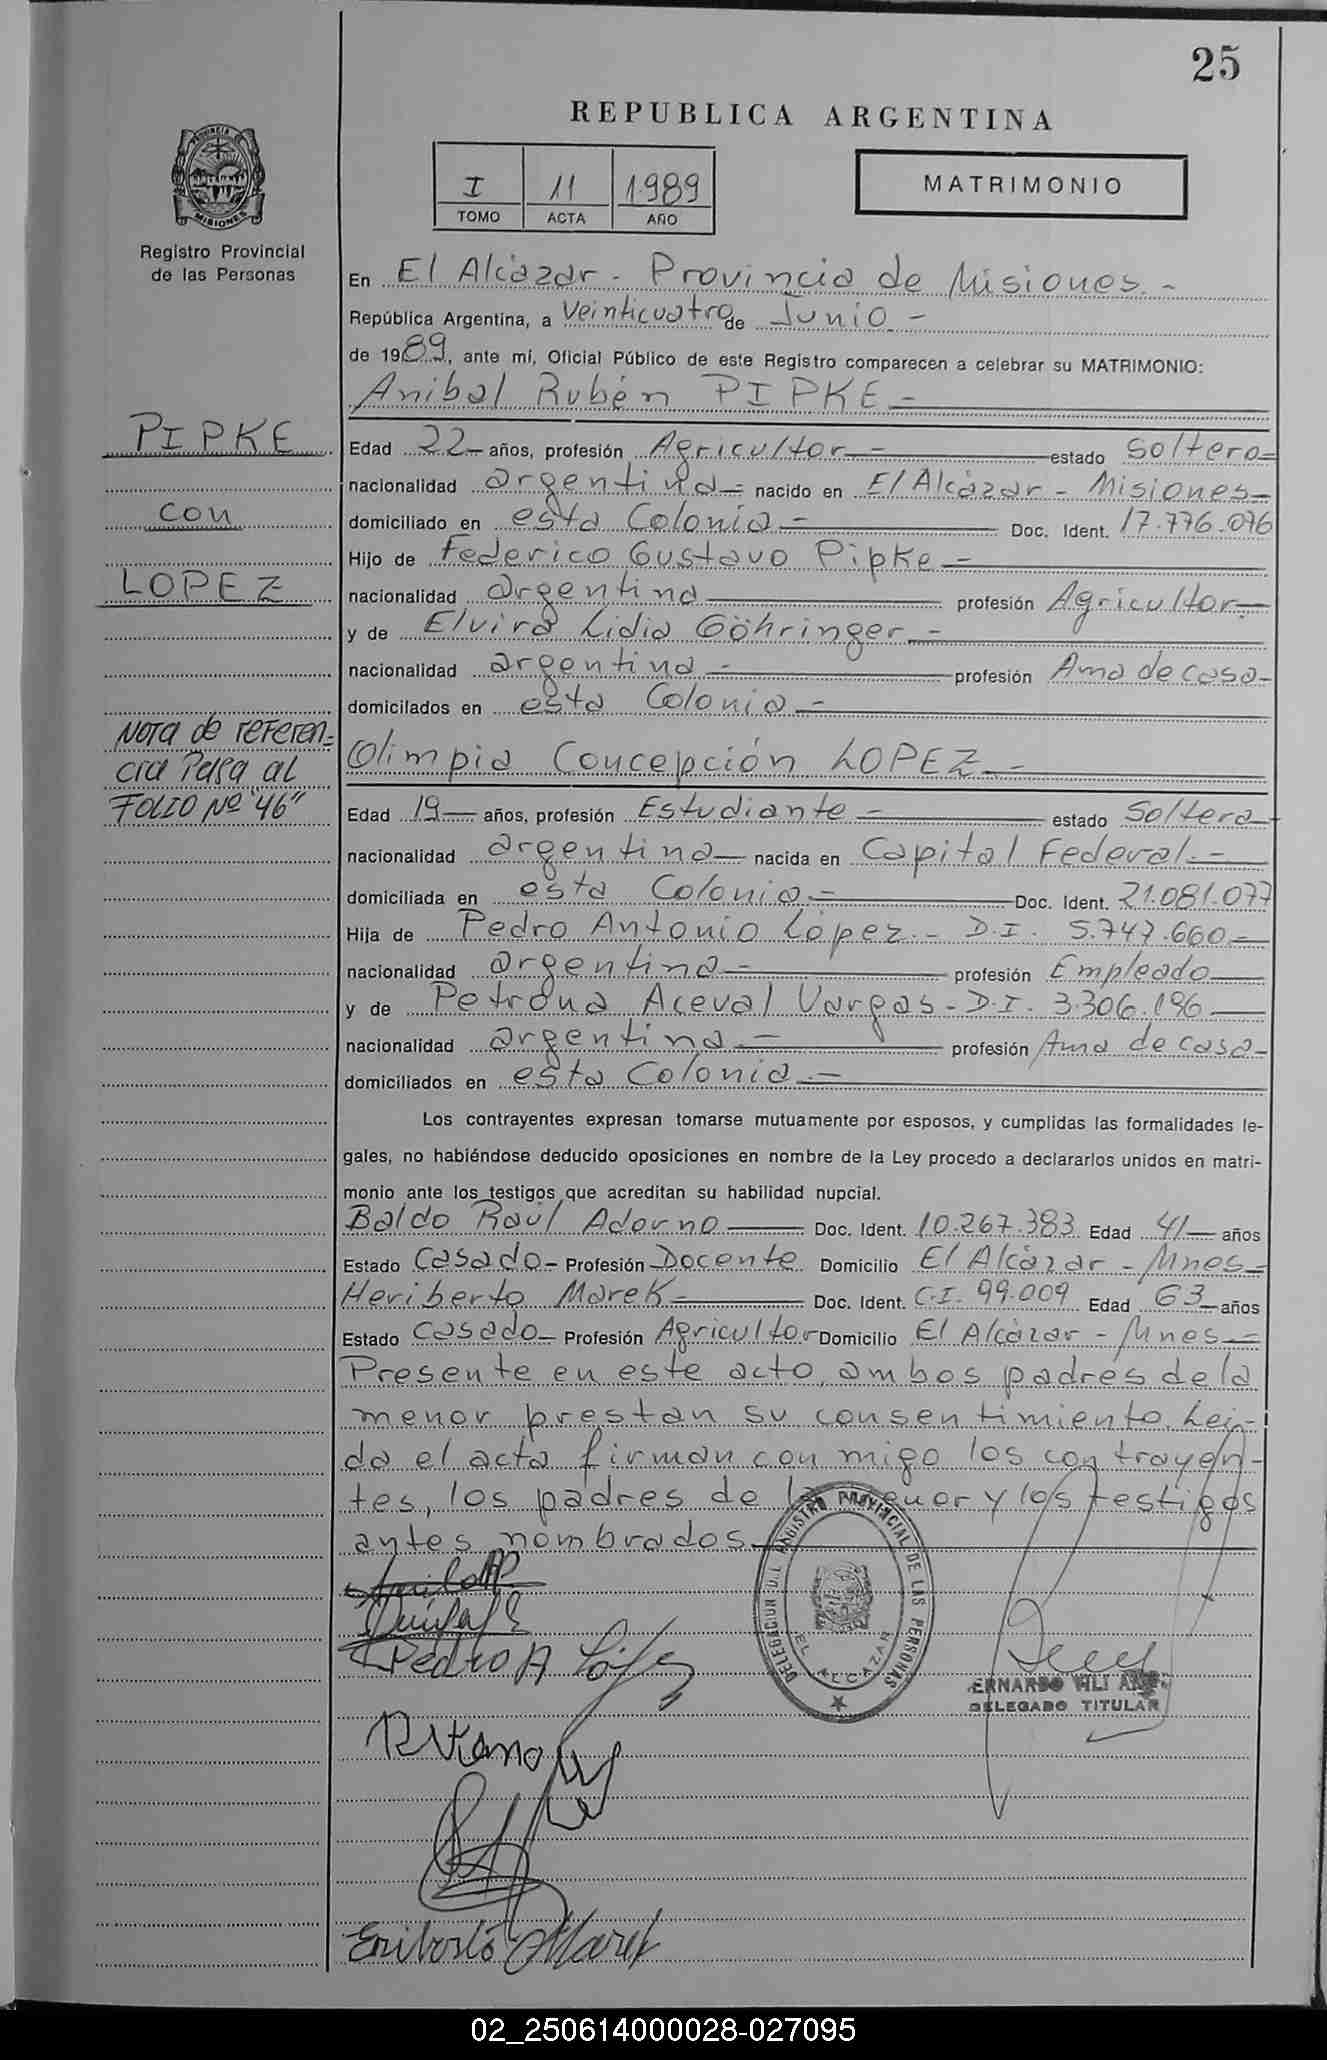 25
REPUBLICA ARGENTINA
PROVINCIA DE
MISIONES
Registro Provincial
de las Personas
I 11 1989
TOMO ACTA AÑO
MATRIMONIO
En El Alcázar - Provincia de Misiones.-
República Argentina, a veinticuatro de Junio -
de 1989, ante mí, Oficial Público de este Registro comparecen a celebrar su MATRIMONIO:
Anibal Rubén PIPKE -
PIPKE
con
LOPEZ
Edad 22- años, profesión Agricultor - estado Soltero=
nacionalidad argentina= nacido en El Alcázar - Misiones-
domiciliado en esta Colonia - Doc. Ident. 17.776.076
Hijo de Federico Gustavo Pipke -
nacionalidad argentina profesión Agricultor-
y de Elvira Lidia Göhringer -
nacionalidad argentina - profesión Ama de casa-
domicilados en esta Colonia -
Nota de referen=
cia Pasa al
FOLIO Nº "46"
Olimpia Concepción LOPEZ -
Edad 19- años, profesión Estudiante - estado Soltera-
nacionalidad argentina- nacida en Capital Federal.-
domiciliada en esta Colonia - Doc. Ident. 21.081.077
Hija de Pedro Antonio López.- D.I. 5.747.660=
nacionalidad argentina - profesión Empleado
y de Petrona Aceval Vargas - D.I. 3.306.196
nacionalidad argentina - profesión Ama de casa-
domiciliados en esta Colonia.-
Los contrayentes expresan tomarse mutuamente por esposos, y cumplidas las formalidades le-
gales, no habiéndose deducido oposiciones en nombre de la Ley procedo a declararlos unidos en matri-
monio ante los testigos que acreditan su habilidad nupcial.
Baldo Raúl Adorno Doc. Ident. 10.267.383 Edad 41- años
Estado Casado- Profesión Docente Domicilio El Alcázar - Mnes-
Heriberto Marek- Doc. Ident. C.I. 99.009 Edad 63- años
Estado Casado- Profesión Agricultor Domicilio El Alcázar - Mnes-
Presente en este acto, ambos padres de la
menor prestan su consentimiento. Lei-
da el acta firman con migo los contrayen-
tes, los padres de la menor y los testigos
antes nombrados
DELEGACION DEL REGISTRO PROVINCIAL DE LAS PERSONAS
EL ALCAZAR
Pedro A López
DELEGADO TITULAR
Eriberto Marek
02_250614000028-027095